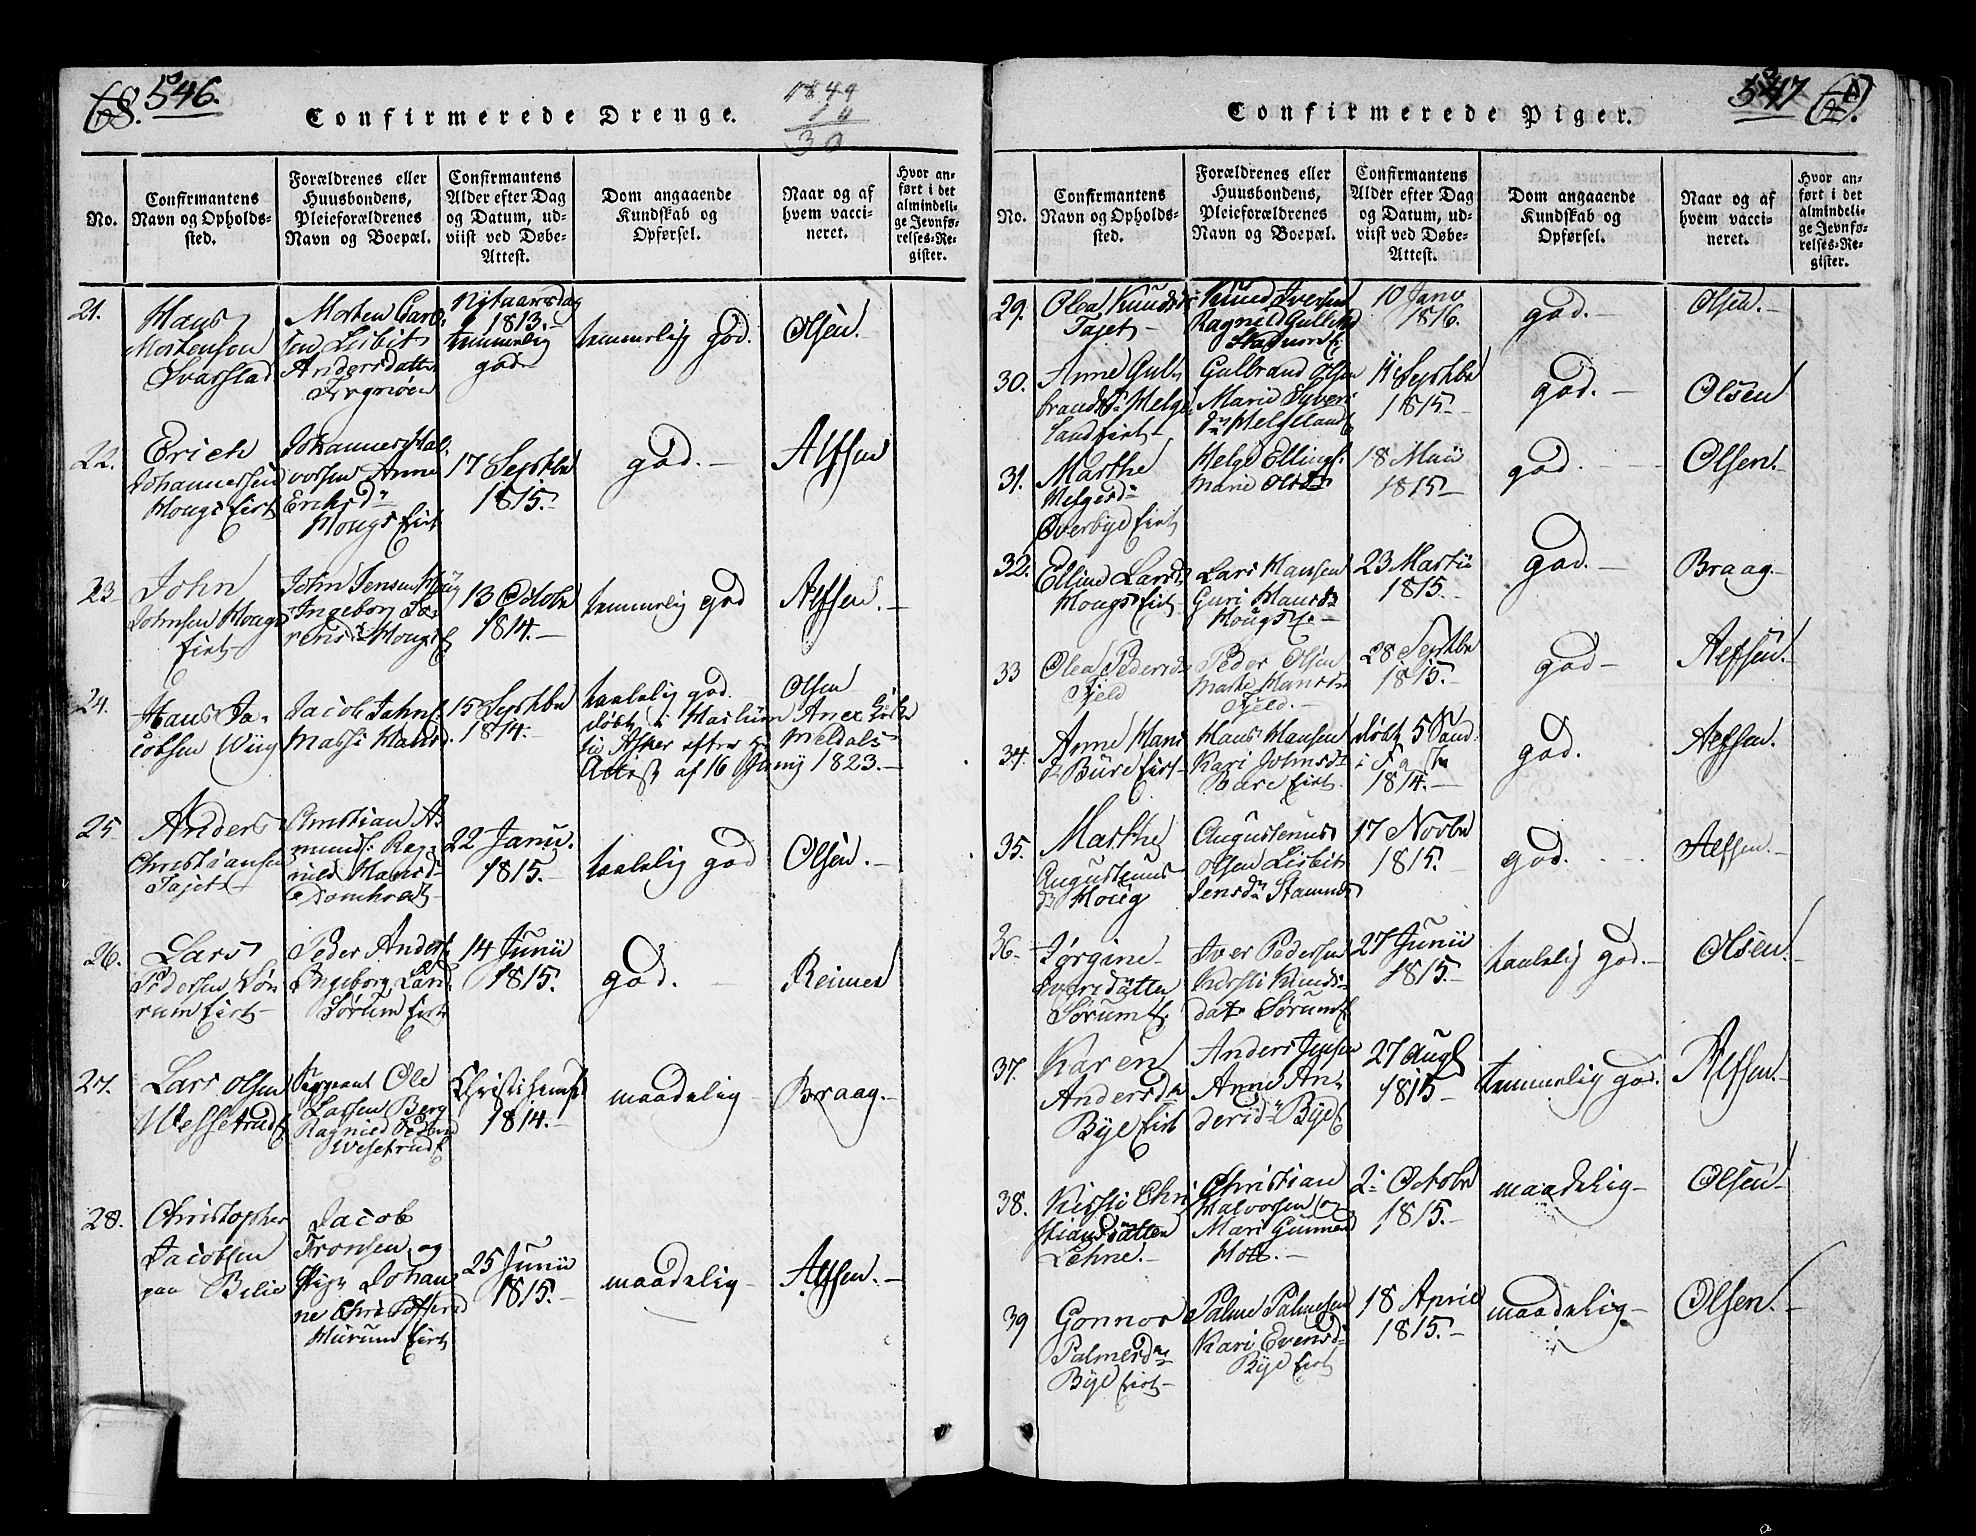 68. 546.
Confirmerede Drenge.
1844
30
No.
Confirmantens
Navn og Opholds-
sted.
Forældrenes eller
Huusbondens,
Pleieforældrenes
Navn og Boepæl.
Confirmantens
Alder efter Dag
og Datum, ud-
viist ved Døbe-
Attest.
Dom angaaende
Kundskab og
Opførsel.
Naar og af
hvem vacci-
neret.
Hvor an-
ført i det
almindeli-
ge Jevnfø-
relses-Re-
gister.
21.
Hans
Mortensen
Svarstad
Morten
Lisbit
Andersdatter
Nytaarsdag
1813.
temmelig
god
temmelig god.
Olsen.
22.
Erich
Johannessen
Hougs eiet
Johannes Hal-
vorsen Anne
Ericksd
Hougs eiet
17 Septbr
1815.
god.
Alfsen
23
John
Johnsen Hougs
eiet
John Jensen
Ingeborg So-
rensd Hougs
13 Octobr
1814.
temmelig god
Alfsen.
24.
Hans Ja-
cobsen Wiig
Jacob
Hansd.
15 Septbr
1814.
taalelig god.
døbt i Haslum
Asker efter
Attest af 16 Juny 1823.
Olsen
25
Anders
Christiansen
Tajet
Christian A-
munds. Rag-
nild Hansd
22 Janu.
1815.
taalelig god
Olsen.
26.
Lars
Pedersen Sø-
rum eiet
Peder Anders
Ingeborg Lars
Sørum eiet
14 Junii
1815.
god.
Reimer
27.
Lars Olsen
Wessetrud
Sergeant Ole
Larsen Berg
Ragnied
Wesetrud
Christi
1814.
maadelig
Braag.
28.
Christopher
Jacobsen
paa Belie
Jacob
Tronsen og
Pige Johan-
ne
Murum eiet
25 Junii
1815.
maadelig
Alfsen.
547
Confirmerede Piger.
No.
Confirmantens
Navn og Opholds-
sted.
Forældrenes eller
Huusbondens,
Pleieforældrenes
Navn og Boepæl.
Confirmantens
Alder efter Dag
og Datum, ud-
viist ved Døbe-
Attest.
Dom angaaende
Kundskab og
Opførsel.
Naar og af
hvem vacci-
neret.
Hvor an-
ført i det
almindeli-
ge Jevnfø-
relses-Re-
gister.
29.
Olea Knudsd
Tajet
Knud Iversen
Ragnild
10 Janv
1816.
god.
Olsen.
30.
Anne Gul-
brandsd Helge-
land eiet
Gulbrand Olsen
Marie Syveri
Helgeland
11 Septbr
1815.
god.
Olsen
31.
Marthe
Helgesd
Øverbye eiet
Helge Ellings.
Marie Olsd
18 Maii
1815
god.
Olsen.
32.
Elline Larsd
Hougs eiet
Lars Hansen
Guri Hansd
Hougs E.
23 Martii
1815.
god.
Braag.
33
Olea Pedersd
Fjeld
Peder Olsen
Marte Hansd
Fjeld.
28 Septbr
1815.
god
Alfsen.
34.
Anne Hans
d Bure eiet
Hans Hansen
Kari Johnsd
Bure eiet
døbt 5 Sønd.
i Faste
1814.
god.
Alfsen.
35.
Marthe
Augustenus
d Houg
Augustenus
Olsen Lisbit
Jensd
17 Novbr
1815.
god.
Alfsen.
36.
Jørgine
Iversdatter
Sørum E.
Iver Pedersen
Kirsti Knuds-
dat Sørum E
27 Junii
1815.
taalelig god.
Olsen.
37.
Karen
Andersd
Bye eiet
Anders Jensen
Anne An-
dersd Bye E
27 Aug
1815
temmelig god.
Alfsen.
38.
Kirsti Chri
stiansdatter
Lehne.
Christian
Halvorsen og
Mari Gunnerd
Holt.
2 Octobr
1815.
maadelig
Olsen
39
Gonnor
Palmersd
Bye eiet
Palme Palmesen
Kari Evensd
Bye eiet
18 April
1815.
maadelig
Olsen.